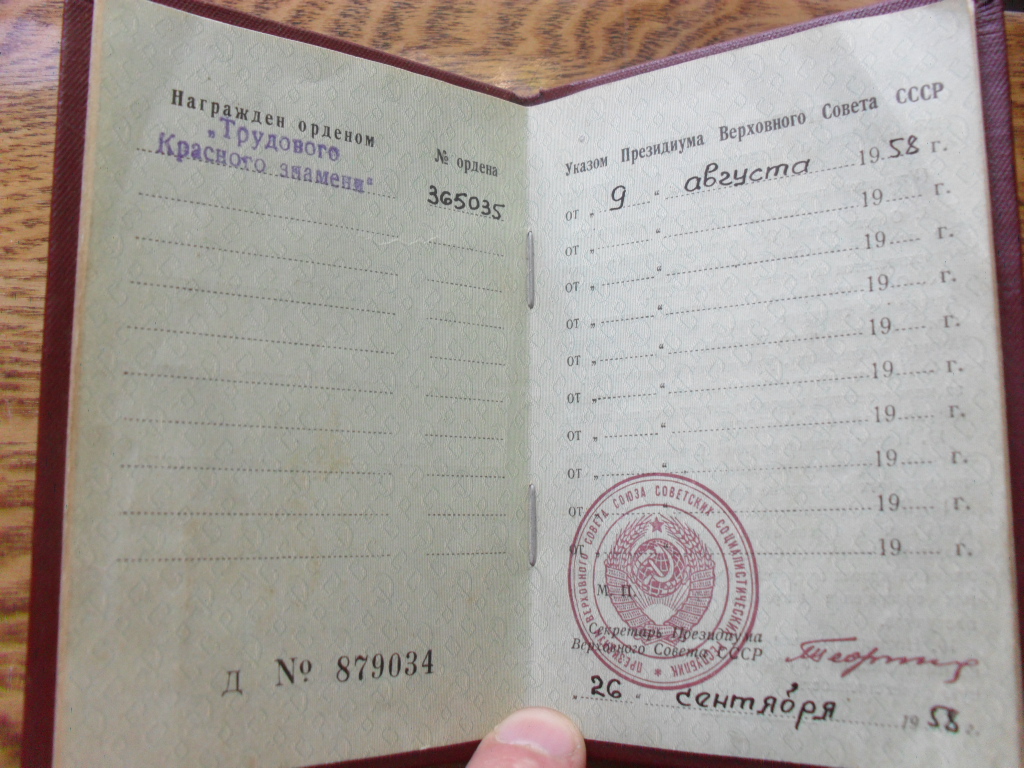 Награжден орденом
„Трудового
Красного знамени“
№ ордена
365035
Д № 879034
Указом Президиума Верховного Совета СССР
от „ 9 “ августа 19 58 г.
от „ “ 19 г.
от „ “ 19 г.
от „ “ 19 г.
от „ “ 19 г.
от „ “ 19 г.
от „ “ 19 г.
от „ “ 19 г.
от „ “ 19 г.
от „ “ 19 г.
М. П.
Секретарь Президиума
Верховного Совета СССР
„ 26 “ сентября 19 58 г.
ПРЕЗИДИУМ ВЕРХОВНОГО СОВЕТА СОЮЗА СОВЕТСКИХ СОЦИАЛИСТИЧЕСКИХ РЕСПУБЛИК